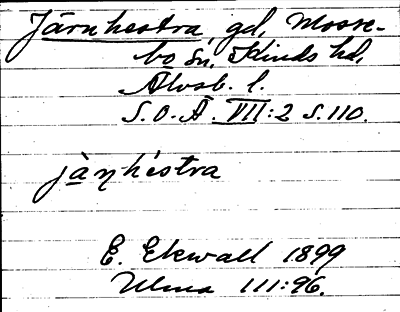 Järnhestra, gd, Mosse-
bo sn, Kinds hd,
Älvsb. l.
S.O.Ä. VII:2 s. 110.
jä̀ṇhéstra
E. Ekwall 1899
Ulma 111:96.